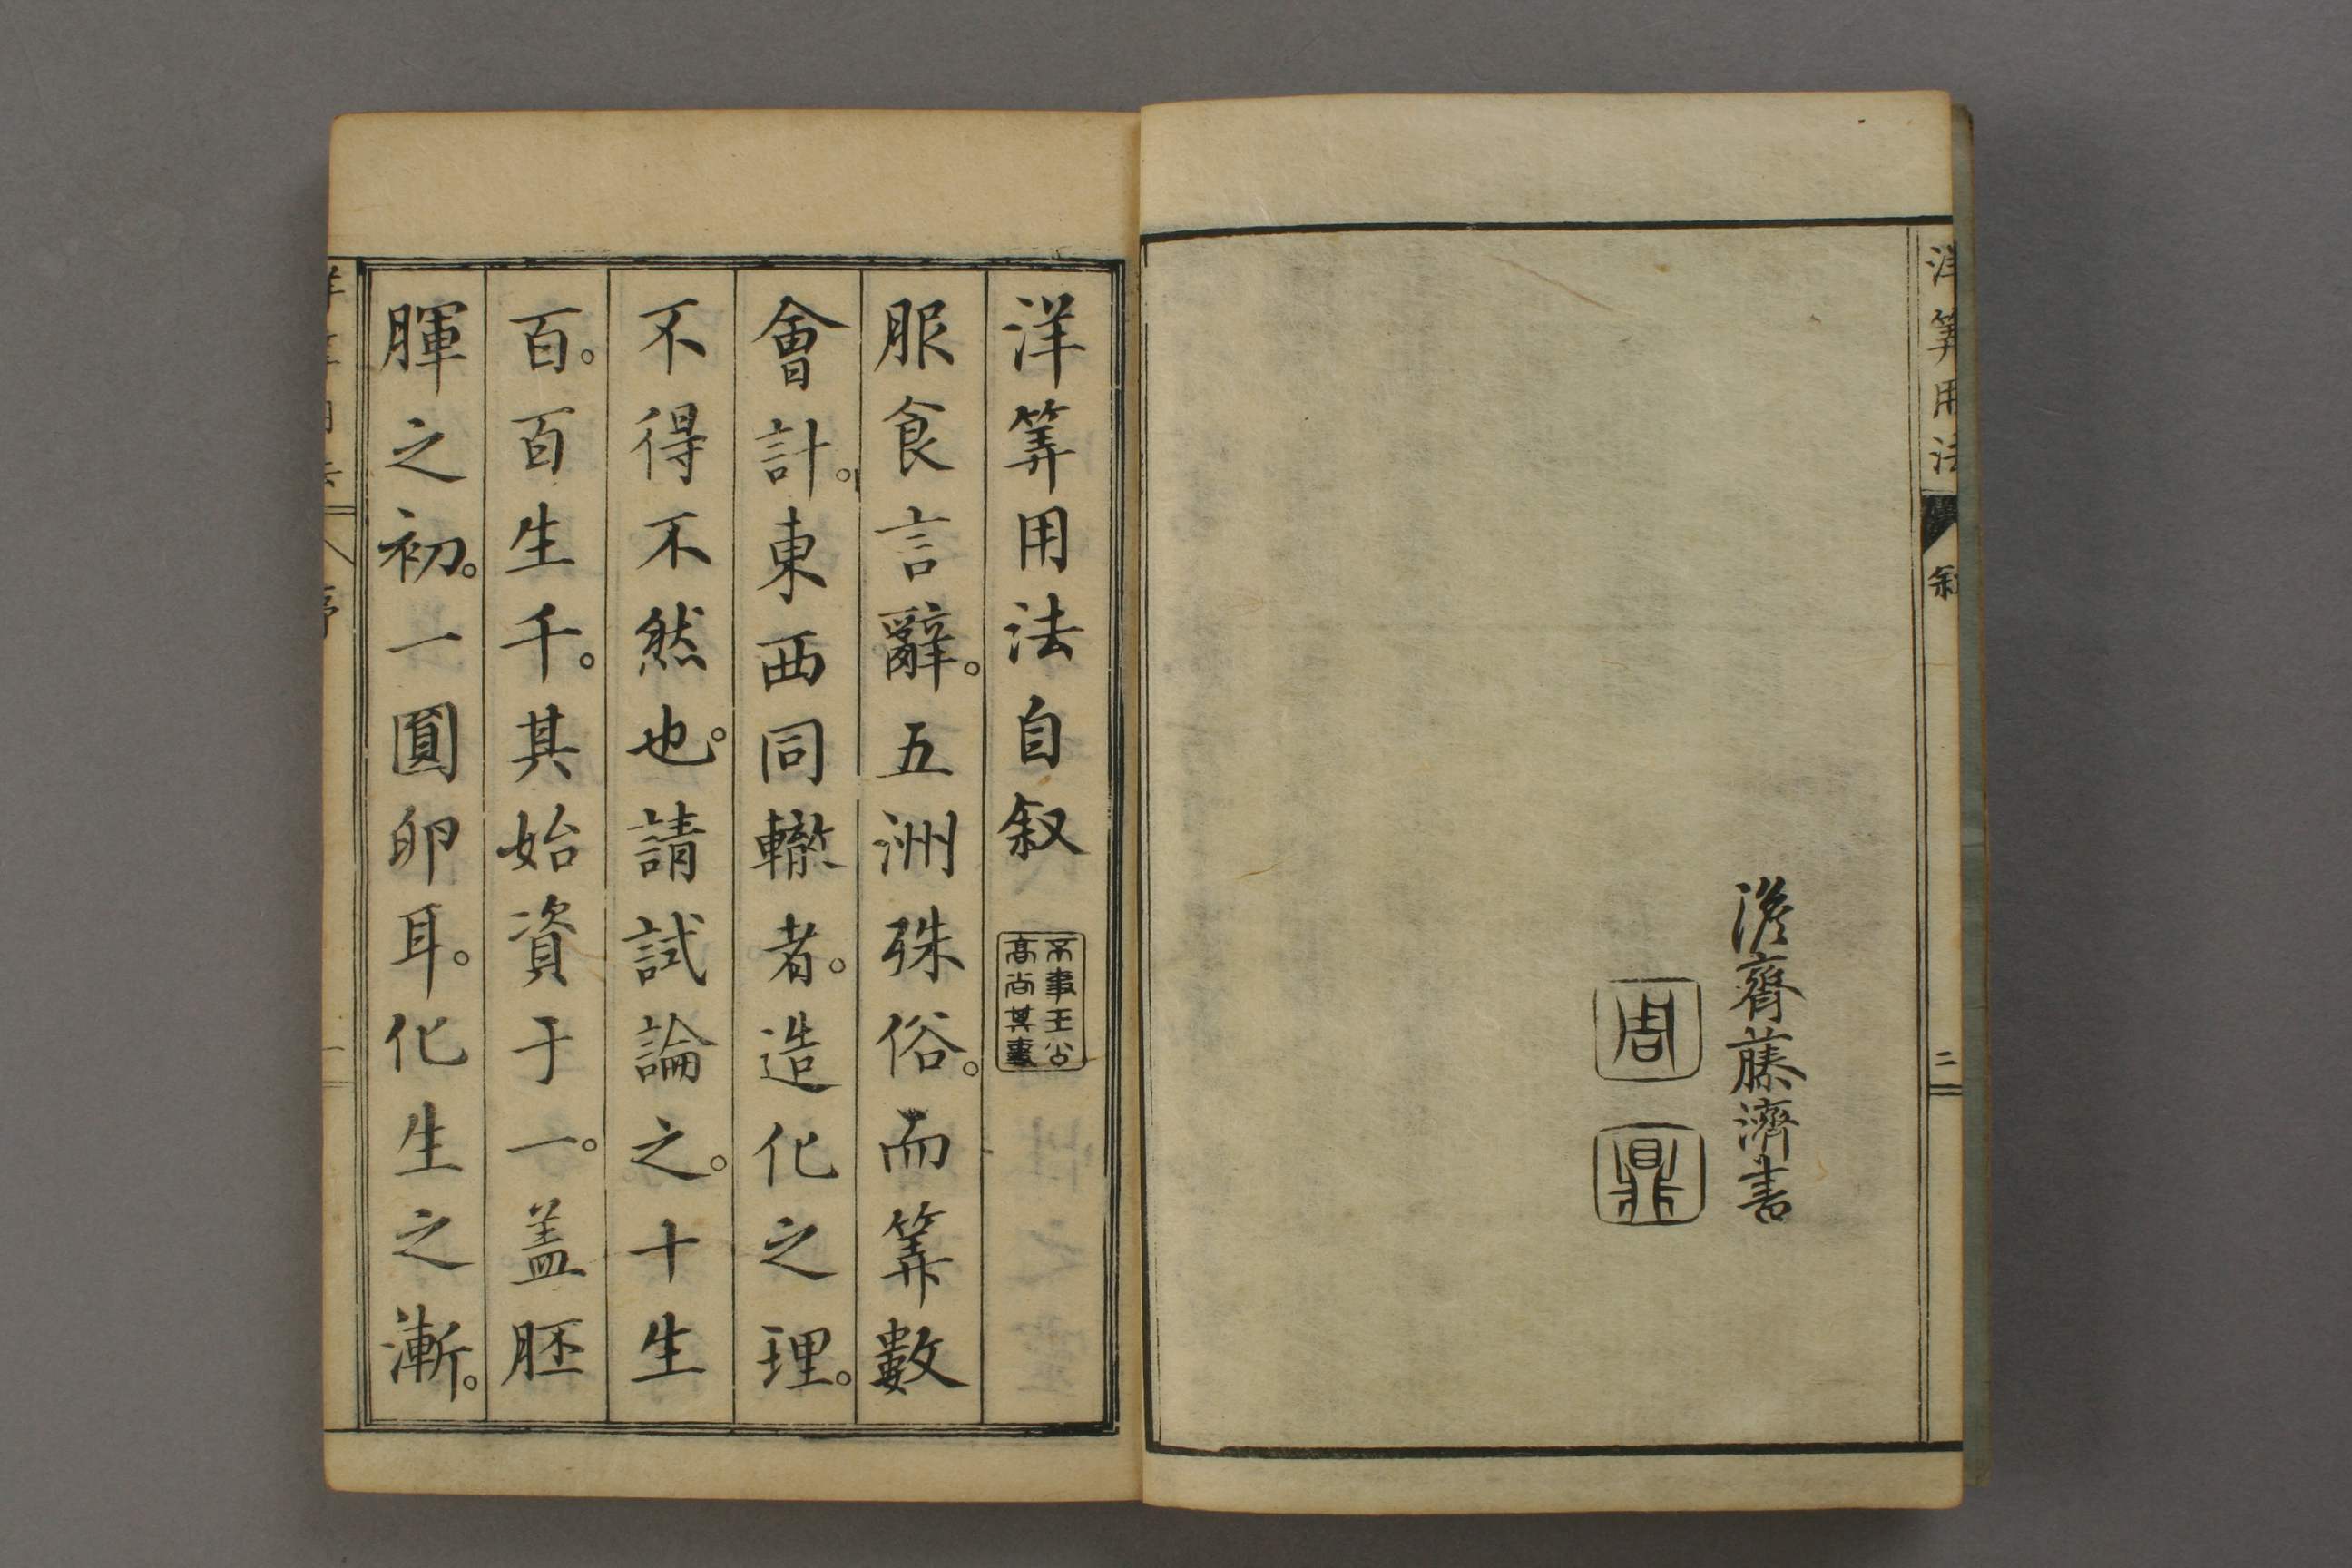 洋筭用法
叙
二
澹齋藤濟書
周
鼎
洋筭用法自叙
不事王公
高尚其事
服食言辭。五洲殊俗。而筭數
會計。東西同轍者。造化之理。
不得不然也。請試論之。十生
百。百生千。其始資于一。盖胚
腪之初。一圓卵耳。化生之漸。